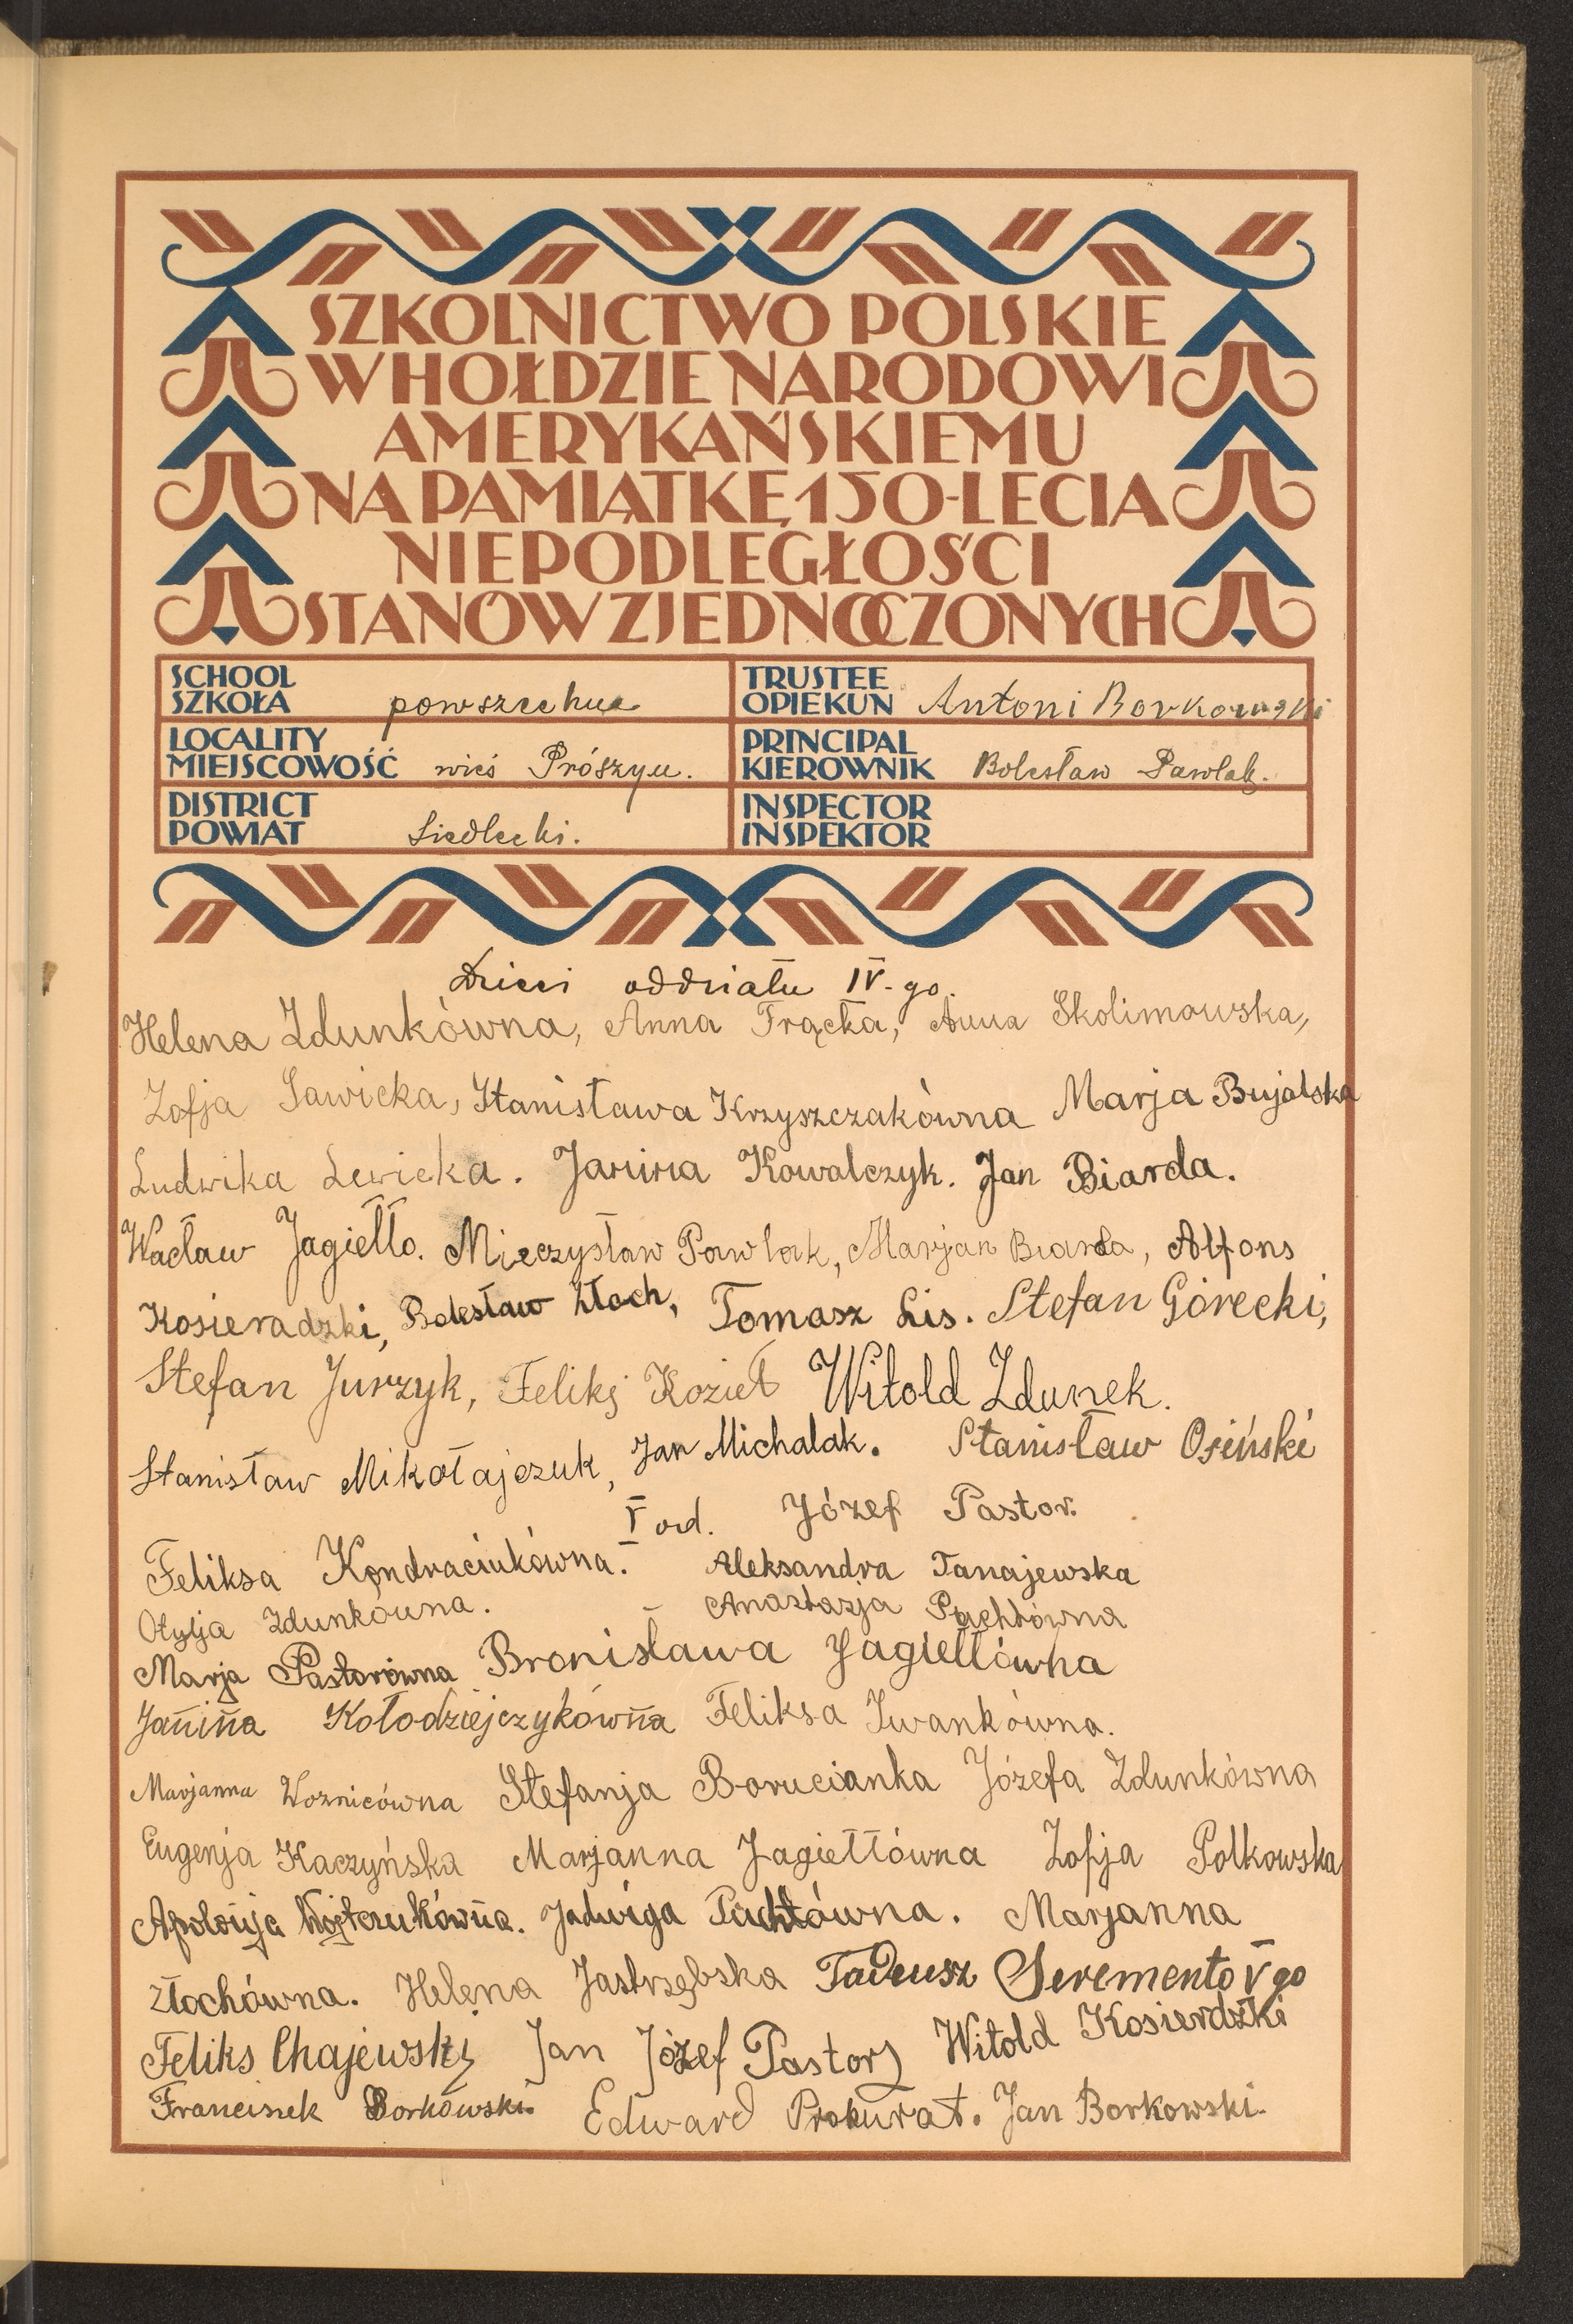 SZKOLNICTWO POLSKIE
W HOŁDZIE NARODOWI
AMERYKAŃSKIEMU
NA PAMIĄTKĘ 150-LECIA
NIEPODLEGŁOŚCI
STANÓW ZJEDNOCZONYCH
SCHOOL
SZKOŁA powszechna
TRUSTEE
OPIEKUN Antoni Borkowski
LOCALITY
MIEJSCOWOŚĆ wieś Prószyn.
PRINCIPAL
KIEROWNIK Bolesław Pawlak.
DISTRICT
POWIAT Siedlecki.
INSPECTOR
INSPEKTOR
Dzieci oddziału IV-go.
Helena Zdunkówna, Anna Frącka, Anna Skolimowska,
Zofja Sawicka, Stanisława Krzyszczakówna Marja Bujalska
Ludwika Lewicka. Janina Kowalczyk. Jan Biarda.
Wacław Jagiełło. Mieczysław Pawlak, Marjan Biarda, Alfons
Kosieradzki, Bolesław Złoch, Tomasz Lis. Stefan Górecki,
Stefan Jurzyk, Feliks Kozieł Witold Zdunek.
Stanisław Mikołajczuk, Jan Michalak. Stanisław Osiński
V od. Józef Pastor.
Feliksa Kondraciukówna. Aleksandra Tanajewska
Otylja Zdunkówna. Anastazja Pachtówna
Marja Pastorówna Bronisława Jagiełłówna
Janina Kołodziejczykówna Feliksa Iwankówna.
Marjanna Woznicówna Stefanja Borucianka Józefa Zdunkówna
Eugenja Kaczyńska Marjanna Jagiełłówna Zofja Polkowska
Apolonja Wojtczukówna. Jadwiga Pachtówna. Marjanna
Złochówna. Helena Jastrzębska Tadeusz Seremento V go
Feliks Chajewski Jan Józef Pastor Witold Kosierdzki
Franciszek Borkowski Edward Prokurat. Jan Borkowski.